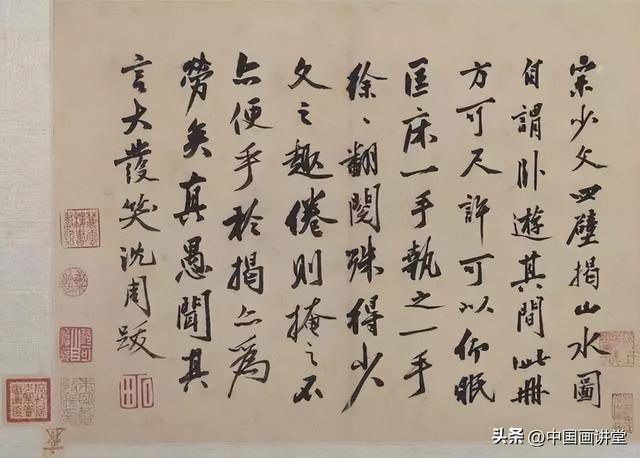 宗少文四壁揭山水圖
自謂卧遊其間此冊
方可尺許可以仰眠
匡床一手執之一手
徐、翻閱殊得少
文之趣倦則掩之不
亦便乎於揭亦為
勞矣真愚聞其
言大發笑沈周跋
石田
头条 @中国画讲堂